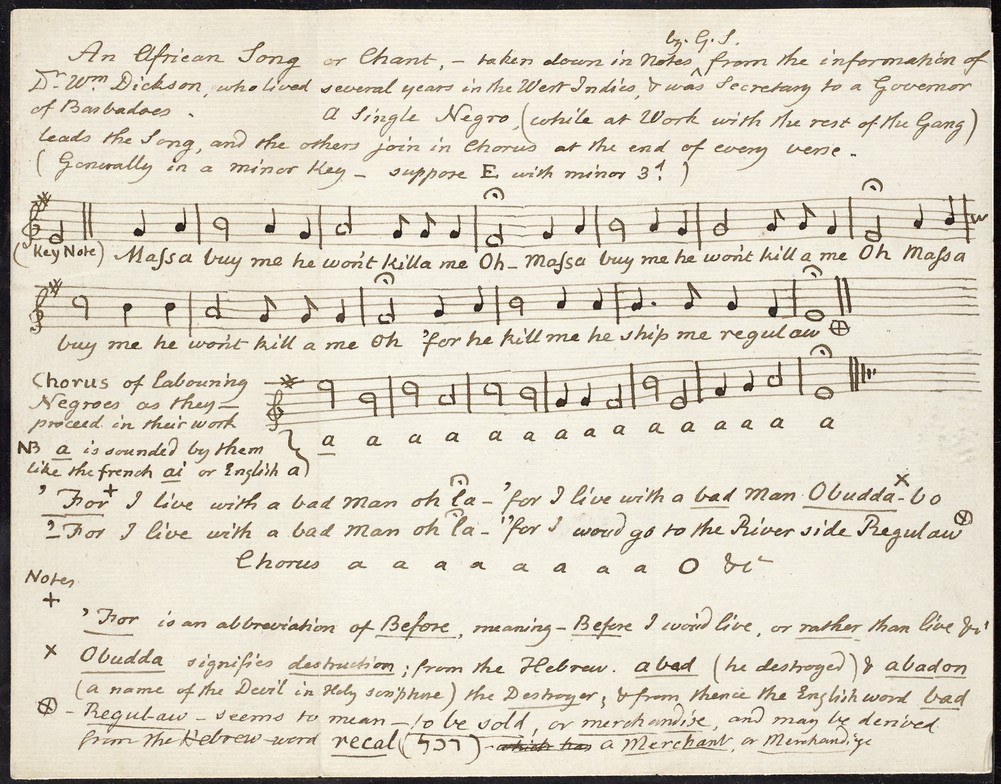 by G. S.
An African Song or Chant, – taken down in Notes ^ from the information of
Dr. Wm Dickson, who lived several years in the West Indies, & was Secretary to a Governor
of Barbadoes. A Single Negro, (while at Work with the rest of the Gang)
leads the Song, and the others join in Chorus at the end of every verse.
(Generally in a minor Key – suppose E with minor 3d.)
(Key Note) Maſsa buy me he won't killa me Oh – Maſsa buy me he won't kill a me Oh Maſsa
buy me he won't kill a me Oh 'for he kill me he ship me regulaw ⊕
Chorus of labouring
Negroes as they –
proceed in their work
a a a a a a a a a a a a a
NB a is sounded by them
like the french ai or English a)
'For + I live with a bad man oh la – 'for I live with a bad Man Obudda-bo x
'For I live with a bad man oh la – 'for I wou'd go to the River side Regulaw ⊗
Chorus a a a a a a a a O &c
Notes
+
'For is an abbreviation of Before, meaning – Before I wou'd live, or rather than live &c
x Obudda signifies destruction; from the Hebrew. abad (he destroyed) & abadon
(a name of the Devil in Holy scripture) the Destroyer; & from thence the English word bad
⊗ – Regulaw – seems to mean – to be sold, or merchandise, and may be derived
from the Hebrew word recal (רכל) which has a Merchant, or Merchandize